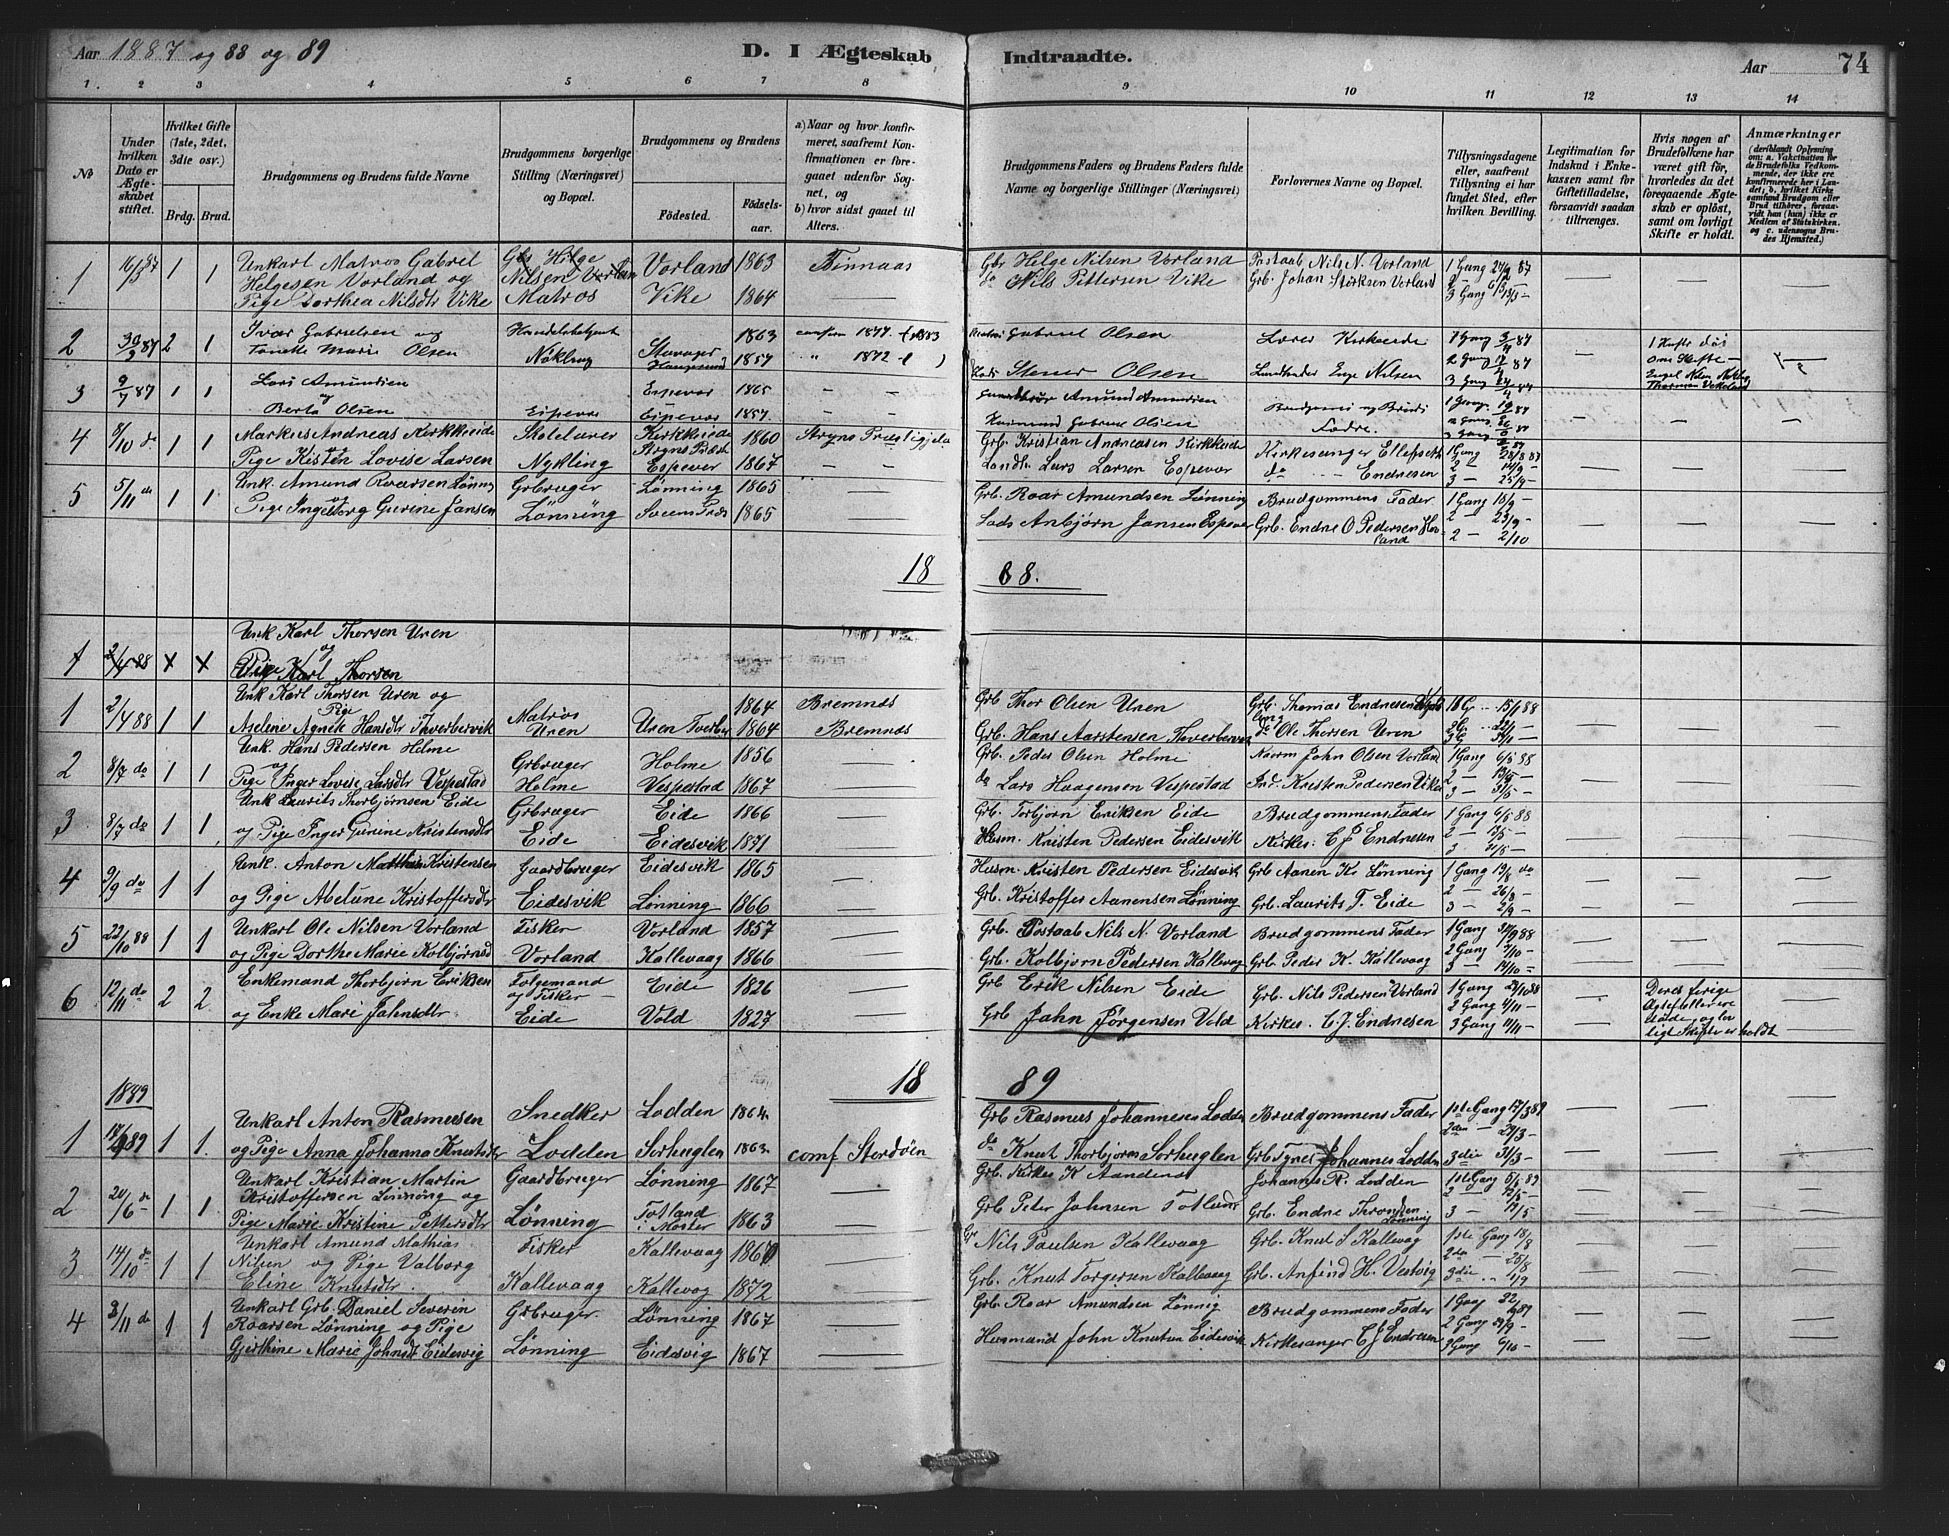 Aar 1887 og 88 og 89
D. I Ægteskab Indtraadte.
Aar
74
1. 2 3 4 5 6 7 8 9 10 11 12 13 14
No
Under hvilken Dato er Ægteskabet stiftet.
Hvilket Gifte (1ste, 2det, 3die osv.)
Brdg. Brud.
Brudgommens og Brudens fulde Navne
Brudgommens borgerlige Stilling (Næringsvei) og Bopæl.
Brudgommens og Brudens
Fødested.
Fødselsaar.
a) Naar og hvor konfirmeret, saafremt Konfirmationen er foregaaet udenfor Sognet, og
b) hvor sidst gaaet til Alters.
Brudgommens Faders og Brudens Faders fulde Navne og borgerlige Stillinger (Næringsvei)
Forlovernes Navne og Bopæl.
Tillysningsdagene eller, saafremt Tillysning ei har fundet Sted, efter hvilken Bevilling.
Legitimation for Indskud i Enkekassen samt for Giftetilladelse, forsaavidt saadan tiltrænges.
Hvis nogen af Brudefolkene har været gift før, hvorledes da det foregaaende Ægteskab er opløst, samt om lovligt Skifte er holdt.
Anmærkninger (deriblandt Oplysning om: a. Vakcination for de Brudefolks Vedkommende, der ikke ere konfirmerede her i Landet; b. hvilket Kirkesamfund Brudgom eller Brud tilhører, forsaavidt han (hun) ikke er Medlem af Statskirken. og c. udensogns Brudes Hjemsted.)
1 16/3 87 1 1
Unkarl Matros Gabriel
Helgesen Vorland og
Pige Dorthea Nilsdtr Vike
Gbr Helge
Nilsen Vorland
Matros
Vorland 1863
Vike 1864
Finnaas
Gbr Helge Nilsen Vorland
do Nils Pittersen Vike
Postaab Nils N. Vorland
Grb. Johan Størksen Vorland
1 Gang 27/2 87
2 – 6/3
3 Gang 13/3 –
2 30/3 87 2 1
Ivær Gabrielsen og
Tonette Marie Olsen
Nøkling
Stavager 1863
Haugesund 1857
conferm 1877
" 1872
Gabriel Olsen
Stener Olsen
Lærer Kirkeeide
Enge Nilsen
om Skifte –
3 9/7 87 1 1
Lars Amundsen
og
Berta Olsen
Espevær
Espevær 1865
Espevær 1857
Amund Amundsen
Gabriel Olsen
Brudgommens og Brudens
Fædre
4 8/10 do 1 1
Markus Andreas Kirkkeide
og
Pige Kisten Lovise Larsen
Skolelærer
Nykling
Kirkkeide 1860
Stryns Præst.
Espevær 1867
Stryns Præstigjeld
Grb. Kristian Andreasen Kirkkeide
Landh. Lars Larsen Espevær
Kirkesanger Ellefseth
do – Endresen
1 Gang 28/8 87
2 –
3 – 25/9 –
5 5/11 do 1 1
Unk. Amund Roarsen Lønning
og
Pige Ingeborg Gurine Jansen
Grbruger
Lønning
Lønning 1865
Sveens Præst. 1865
Grb. Roar Amundsen Lønning
Lods Anbjørn Jansen Espevær
Brudgommens Fader
Grb. Endre O Pedersen Hovland
1 Gang 18/9 –
2 – 25/9 –
2 – 2/10
18 88.
1 2/4 88 x x
Unk Karl Thorsen Uren
og
Pige Karl Thorsen
1 2/4 88 1 1
Unk Karl Thorsen Uren og
Pige
Aselene Agnete Hansdtr Thverbervik
Matros
Uren
1864
Uren Tverber 1864
Bremnæs
Bremnæs
Grb Thor Olsen Uren
Grb. Hans Aartsten Thverbervik
Grb. Thomas Endresen
do Ole Thorsen Uren
1 G 15/1 88
2 G 22/1 –
3 G
2 8/7 do 1 1
Unk. Hans Pedersen Holme
og
Pige Inger Lovise Larsdtr Vespestad
Grbruger
Holme
Holme 1856
Vespestad 1867
Grb. Peder Olsen Holme
do Lars Haagensen Vespestad
Narm John Olsen Vorland
Ind. Kristen Pedersen Vike
1 Gang 6/5 88
2 – 13/5 –
3 – 31/5 –
3 8/7 do 1 1
Unk Laurits Thorbjørnsen Eide
og Pige Inger Gurine Kristensdtr
Grbruger
Eide
Eide 1866
Eidesvik 1871
Grb. Torbjørn Eriksen Eide
Husm. Kristen Pedersen Eidesvik
Brudgommens Fader
Kirkes. C J Endresen
1 Gang 6/5 88
2 –
3 31/5 –
4 9/9 do 1 1
Unk. Anton Mathias Kristensen
og Pige Abelune Kristoffersdtr
Gaardbruger
Eidesvik
Eidesvik 1865
Lønning 1866
Husm. Kristen Pedersen Eidesvik
Grb. Kristoffer Aanensen Lønning
Grb Aanen Kr. Lønning
Grb. Laurits T. Eide
1 Gang 19/8 do
2 – 26/8 –
3 – 2/9 –
5 22/10 88 1 1
Unkarl Ole Nilsen Vorland
og Pige Dorthe Marie Kolbjørnsd
Fisker
Vorland
Vorland 1857
Kallevaag 1866
Grb. Postaab Nils N. Vorland
Grb. Kolbjørn Pedersen Kallevaag
Brudgommens Fader
Grb. Peder K. Kallevaag
1 Gang 30/9 88
2 Gang 7/10 –
3 – 14/10 –
6 12/11 do 2 2
Enkemand Thorbjørn Eriksen
og Enke Mari Johnsdtr
Folgemand
og Fisker
Eide
Eide 1826
Vold 1827
Grb Erik Nilsen Eide
Grb John Jørgensen Vold
Grb. Nils Pedersen Vorland
Kirkes. C. J. Endresen
1 Gang 28/10 88
2 Gang 4/11 –
3 Gang 11/11 –
Deres forige
Ægtefeller ere
døde, og lov
ligt Skifte er holdt
18 89
1889
1 14/4 89 1 1.
Unkarl Anton Rasmusen
og Pige Anna Johanna Knutsdtr
Snedker
Lodden
Lodden 1864
Sorhuglen 1863
comf Stordøen
Grb Rasmus Johannesen Lodden
do Knut Thorbjørns Sorhuglen
Brudgommens Fader
Grb Johannes Lodden
1ste Gang 17/3 89
2den – 24/3 –
3die 31/3 –
2 20/6 do 1 1
Unkarl Kristian Martin
Kristoffersen Lønning og
Pige Marie Kristine Pettersdtr
Gaardbruger
Lønning
Lønning 1867
Totland
i Moster 1863
Grb. Kirkes K Aandenes
Grb Peter Johnsen Totland
Johannes R. Lodden
Grb. Endre Thronsen
Lønning
1ste Gang 5/5 89
2 – 12/5 –
3 – 19/5
3 14/10 do 1 1
Unkarl Amund Mathias
Nilsen og Pige Valborg
Eline Knutsdtr.
Fisker
Kallevaag
Kallevaag
Kallevog 1872
Gr Nils Paulsen Kallevaag
Grb. Knut Torgersen Kallevaag
Grb. Knut S Kallevag
Grb. Anfind H. Vestvig
1ste Gang 18/8
2da – 25/8
3die " 1/9
4 3/11 do 1 1
Unkarl Grb. Daniel Severin
Roarsen Lønning og Pige
Gjerthine Marie Johnsdt Eidesvig
Grbruger.
Lønning
Lønning 1867
Eidesvig 1867
Grb. Roar Amundsen Lønnig
Husmand John Knutsen Eidesvik
Brudgommens Fader
Kirkesanger C J Endresen
1 Gang 22/9 89
2 Gang 29/9 –
3 Gang 6/10 –